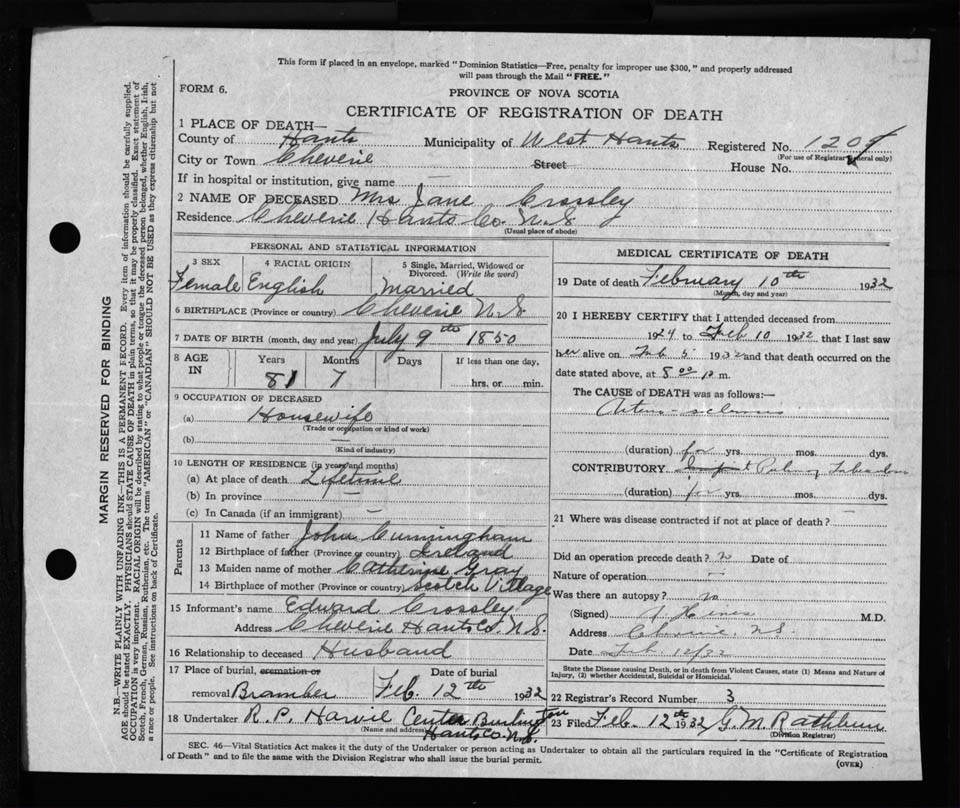 This form if placed in an envelope, marked "Dominion Statistics—Free, penalty for improper use $300," and properly addressed
will pass through the Mail "FREE."
FORM 6.
PROVINCE OF NOVA SCOTIA
CERTIFICATE OF REGISTRATION OF DEATH
1 PLACE OF DEATH—
County of Hants Municipality of West Hants Registered No. 1209
(For use of Registrar General only)
City or Town Cheverie Street House No.
If in hospital or institution, give name —
2 NAME OF DECEASED Mrs Jane Crossley
Residence Cheverie Hants Co. N.S
(Usual place of abode)
PERSONAL AND STATISTICAL INFORMATION
3 SEX 4 RACIAL ORIGIN 5 Single, Married, Widowed or
Divorced. (Write the word)
Female English Married
6 BIRTHPLACE (Province or country) Cheverie N.S.
7 DATE OF BIRTH (month, day and year) July 9th 1850
8 AGE IN Years Months Days If less than one day,
81 7 hrs. or min.
9 OCCUPATION OF DECEASED
(a) Housewife
(Trade or occupation or kind of work)
(b) —
(Kind of industry)
10 LENGTH OF RESIDENCE (in years and months)
(a) At place of death Lifetime
(b) In province —
(c) In Canada (if an immigrant) —
Parents
11 Name of father John Cunningham
12 Birthplace of father (Province or country) Ireland
13 Maiden name of mother Catherine Gray
14 Birthplace of mother (Province or country) Scotch Village
15 Informant's name Edward Crossley
Address Cheverie Hants Co. N.S.
16 Relationship to deceased Husband
17 Place of burial, cremation or Date of burial
removal Bramber Feb. 12th 1932
18 Undertaker R. P. Harvie Center Burlington
(Name and address) Hants Co. N.S.
MEDICAL CERTIFICATE OF DEATH
19 Date of death February 10th 1932
(Month, day and year)
20 I HEREBY CERTIFY that I attended deceased from
1924 to Feb 10 1932 that I last saw
her alive on Feb 5 1932 and that death occurred on
date stated above, at 8 00 p m.
The CAUSE of DEATH was as follows:—
Arterio-sclerosis
(duration) for yrs. mos. dys.
CONTRIBUTORY
(duration) for yrs. mos. dys.
21 Where was disease contracted if not at place of death? —
Did an operation precede death? no Date of
Nature of operation —
Was there an autopsy? no
(Signed) M.D.
Address Cheverie, N.S.
Date Feb 12/32
State the Disease causing Death, or in death from Violent Causes, state (1) Means and Nature of
Injury, (2) whether Accidental, Suicidal or Homicidal.
22 Registrar's Record Number 3
23 Filed Feb. 12th 1932 G. M. Rathbun
(Division Registrar)
SEC. 46—Vital Statistics Act makes it the duty of the Undertaker or person acting as Undertaker to obtain all the particulars required in the "Certificate of Registration
of Death" and to file the same with the Division Registrar who shall issue the burial permit. (OVER)
MARGIN RESERVED FOR BINDING
N.B.—WRITE PLAINLY WITH UNFADING INK—THIS IS A PERMANENT RECORD. Every item of information should be carefully supplied.
AGE should be stated EXACTLY. PHYSICIANS should STATE CAUSE OF DEATH in plain terms, so that it may be properly classified. Exact statement of
OCCUPATION is very important. RACIAL ORIGIN will be described by stating to what people or tongue the deceased person belonged, whether English, Irish,
Scotch, French, German, Russian, Ruthenian, etc. The terms "AMERICAN" or "CANADIAN" SHOULD NOT BE USED as they express citizenship but not
a race or people. See instructions on back of Certificate.